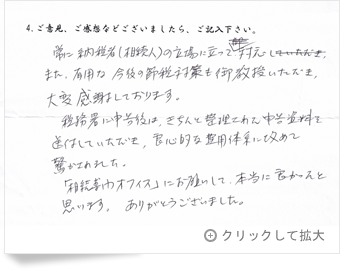 4.ご意見、ご感想などございましたら、ご記入下さい。
常に納税者(相続人)の立場に立つ対応していただき、
また、有用な今後の節税対策も御教授いただき、
大変感謝しております。
税務署に申告後は、きちんと整理された申告資料を
送付していただき、良心的な費用体系に改めて
驚かされました。
「相続専門オフィス」にお願いして、本当に良かったと
思います。ありがとうございました。
クリックして拡大